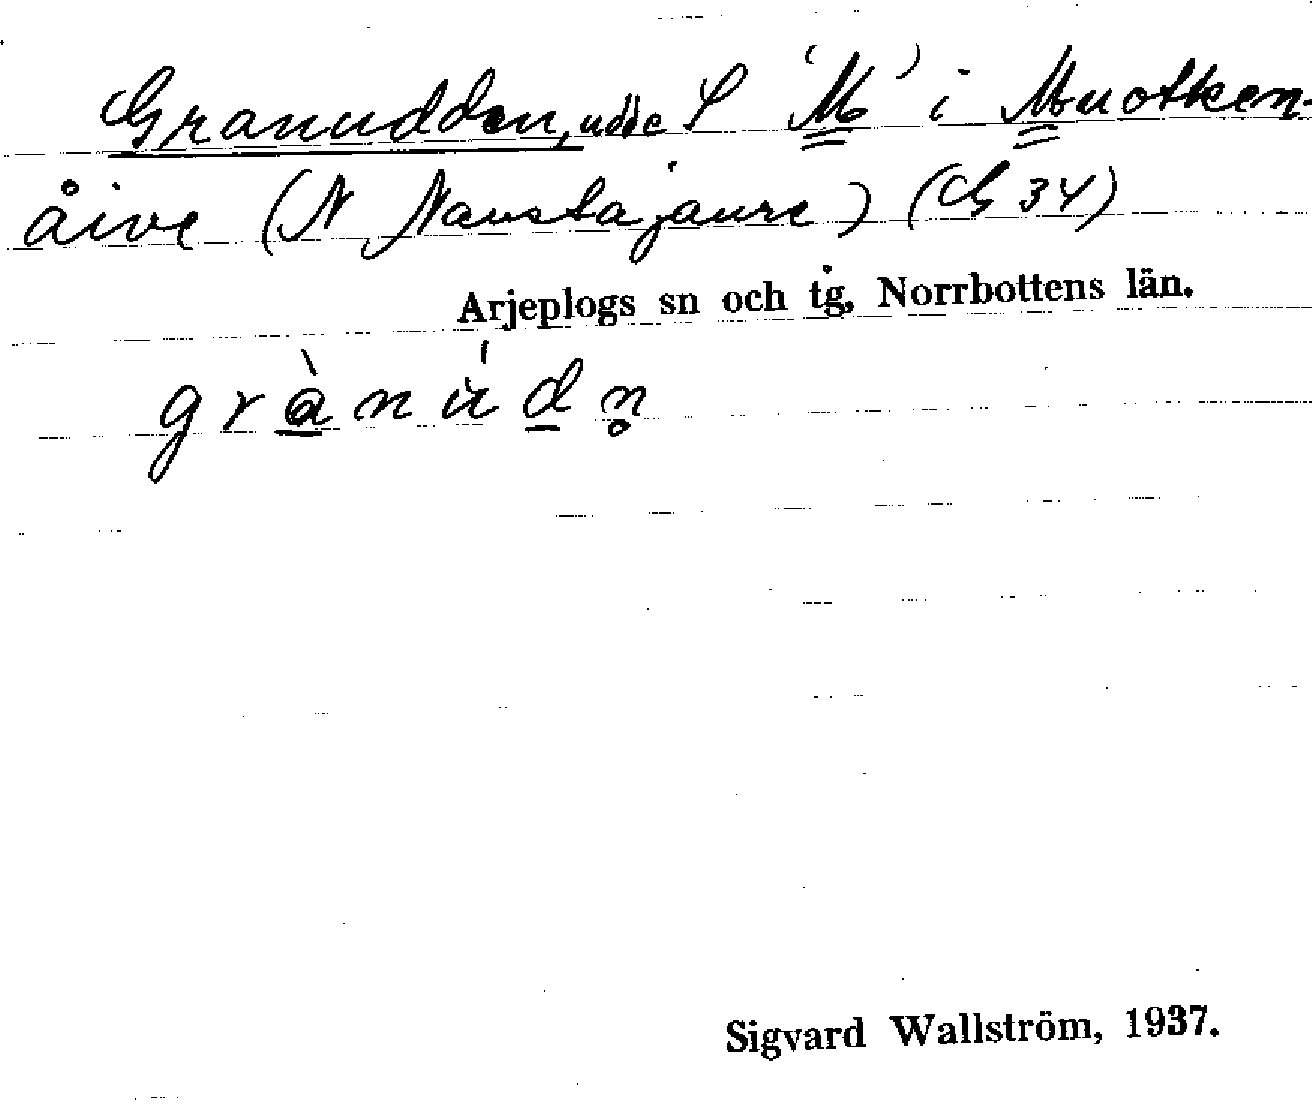 Granudden, udde S 'M' i Muotken-
åive (N Naustajaure) (G 34)
Arjeplogs sn och tg, Norrbottens län.
grànúdn̥
Sigvard Wallström, 1937.